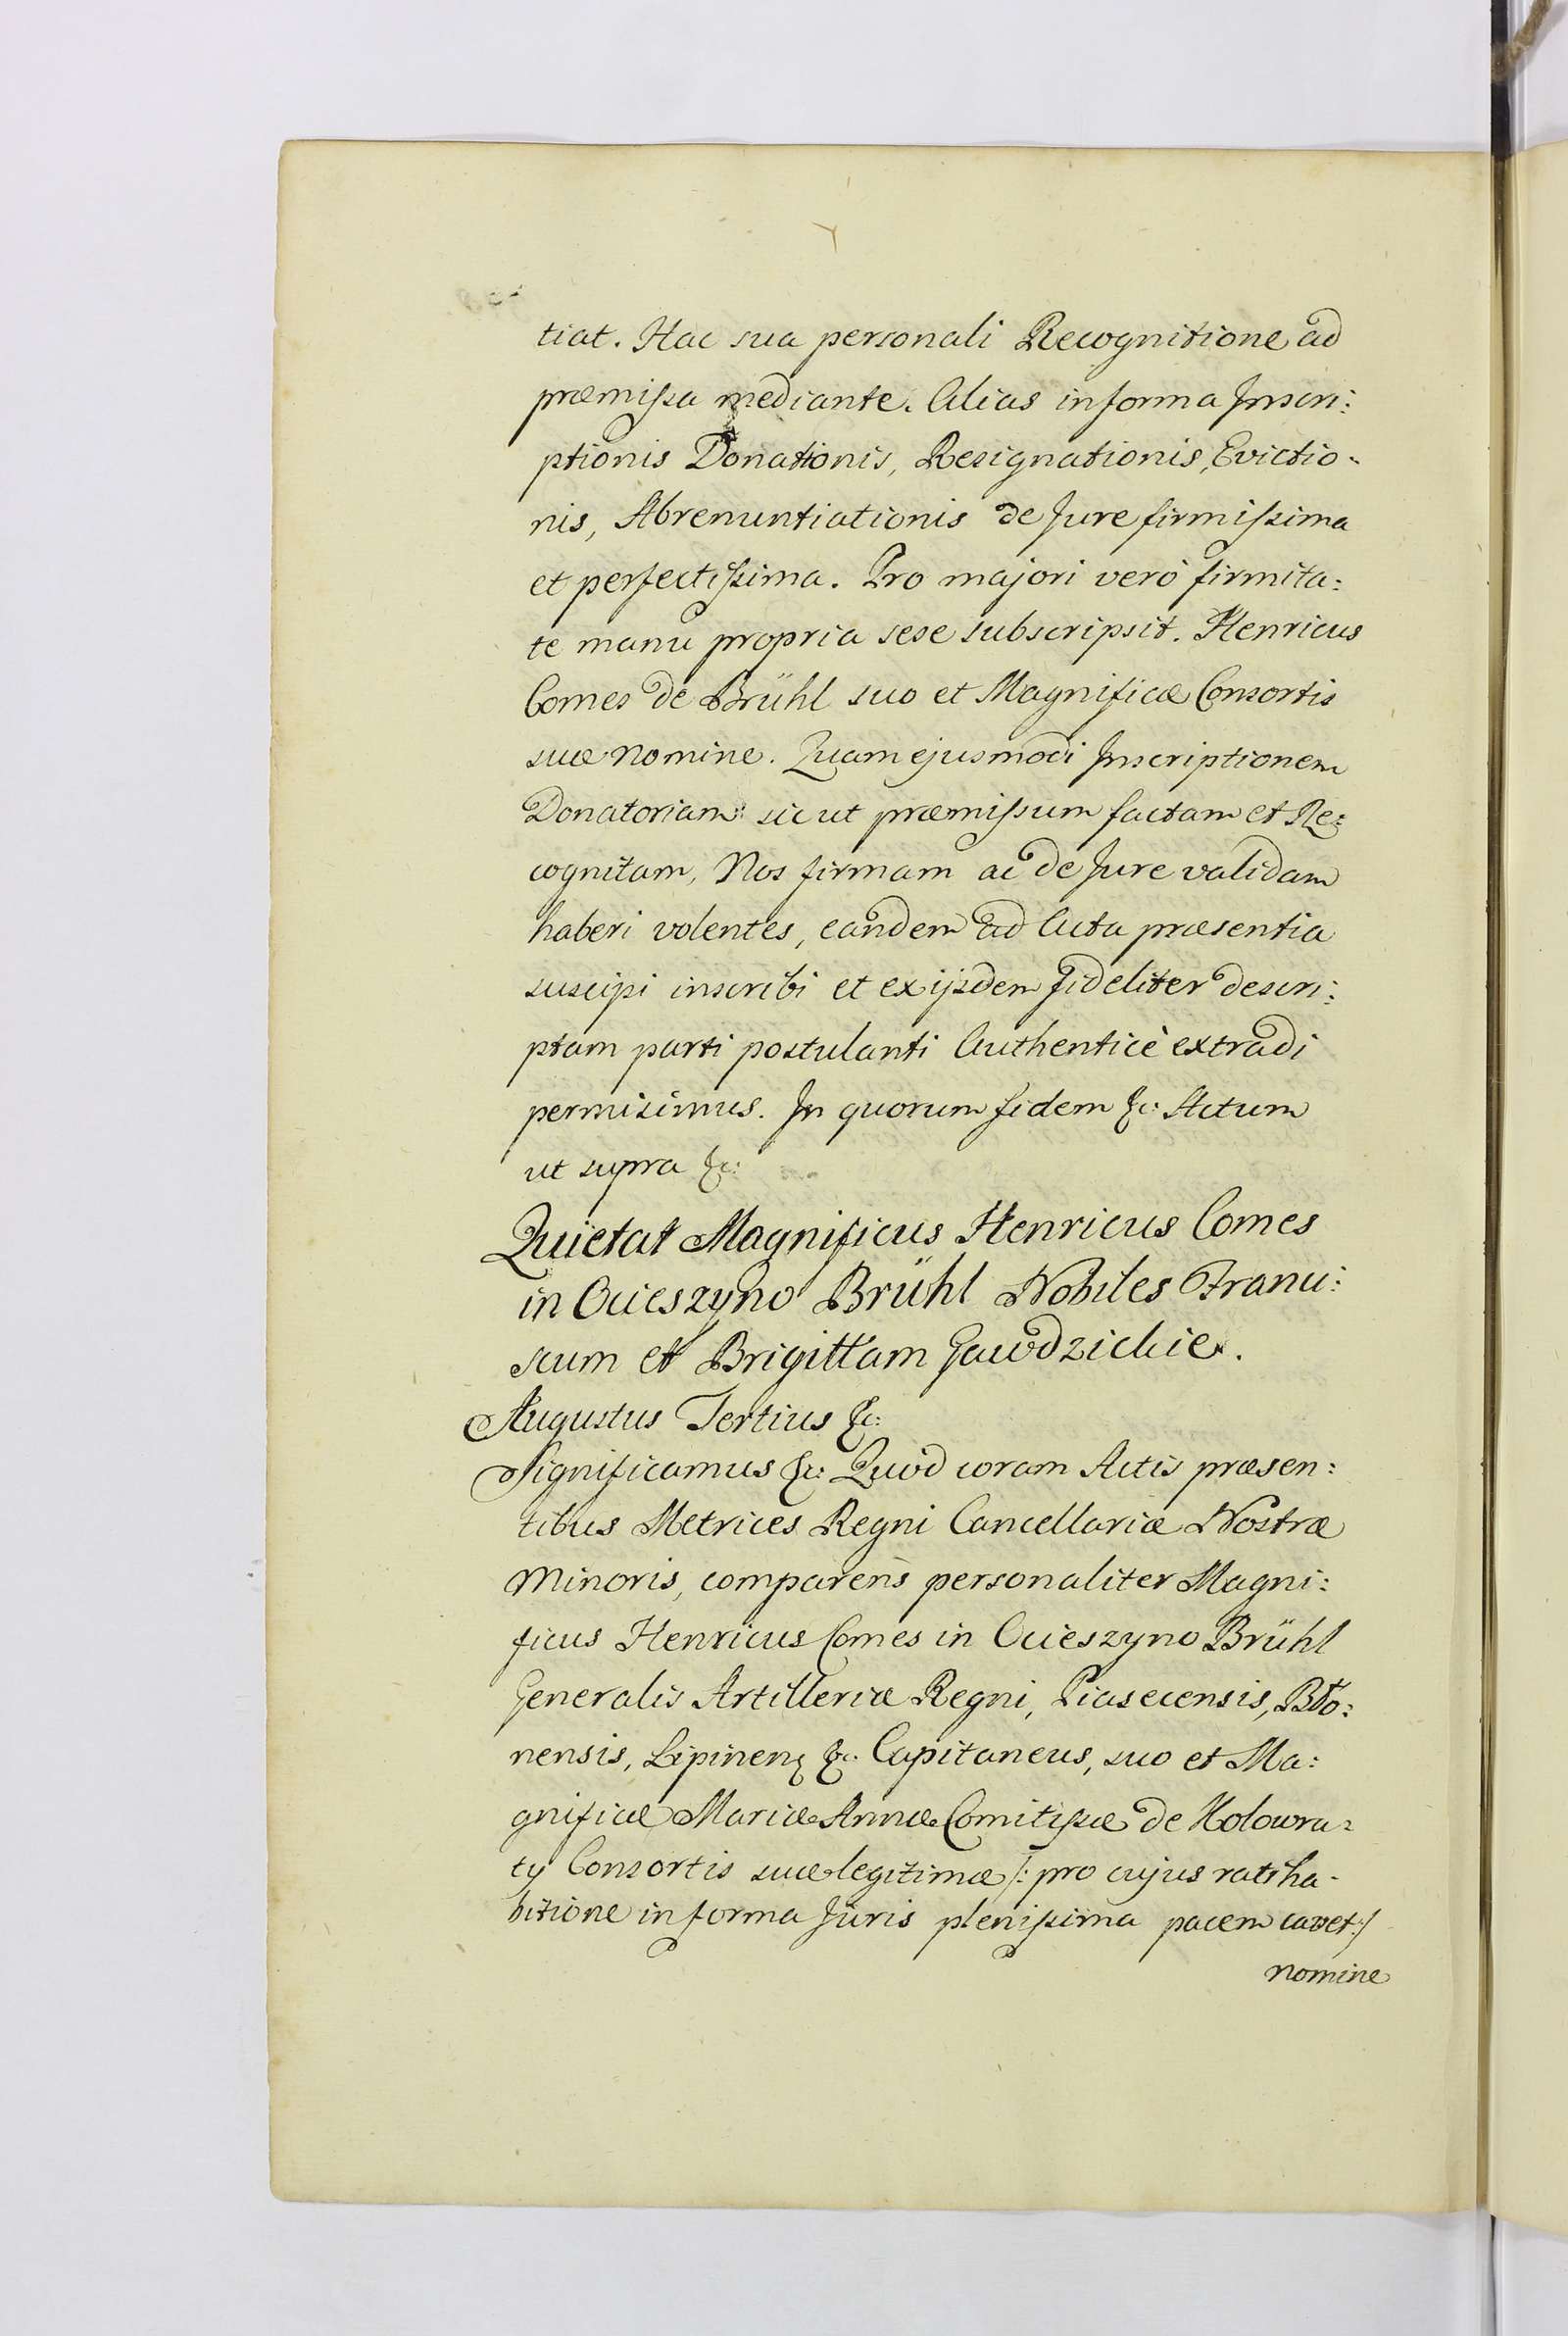 tiat. Hac sua personali Recognitione ad
præmißa mediante. Alias in forma Inscri:
ptionis Donationis, Resignationis, Evictio-
nis, Abrenuntiationis de Jure firmißima
et perfectißima. Pro majori verò firmita:
te manu propria sese subscripsit. Henricus
Comes de Brühl suo et Magnificæ Consortis
suæ nomine. Quam ejusmodi Inscriptionem
Donatoriam sic ut præmißum factam et Re:
cognitam, Nos firmam ac de Jure validam
haberi volentes, eandem ad Acta præsentia
suscipi inscribi et ex ijsdem fideliter descri:
ptam parti postulanti Authenticè extradi
permisimus. In quorum fidem &c: Actum
ut supra &c:
Quietat Magnificus Henricus Comes
in Ocieszyno Brühl Nobiles Franci:
scum et Brigittam Gawdzickie.
Augustus Tertius &c:
Significamus &c: Quod coram Actis præsen:
tibus Metrices Regni Cancellariæ Nostræ
Minoris, comparens personaliter Magni:
ficus Henricus Comes in Ocieszyno Brühl
Generalis Artilleriæ Regni, Piasecensis, Bło:
nensis, Lipinen &c. Capitaneus, suo et Ma:
gnificæ Mariæ Annæ Comitißæ de Kolowra:
ty Consortis suæ legitimæ /: pro cujus ratiha-
bitione in forma Juris plenißima pacem cavet :/
nomine